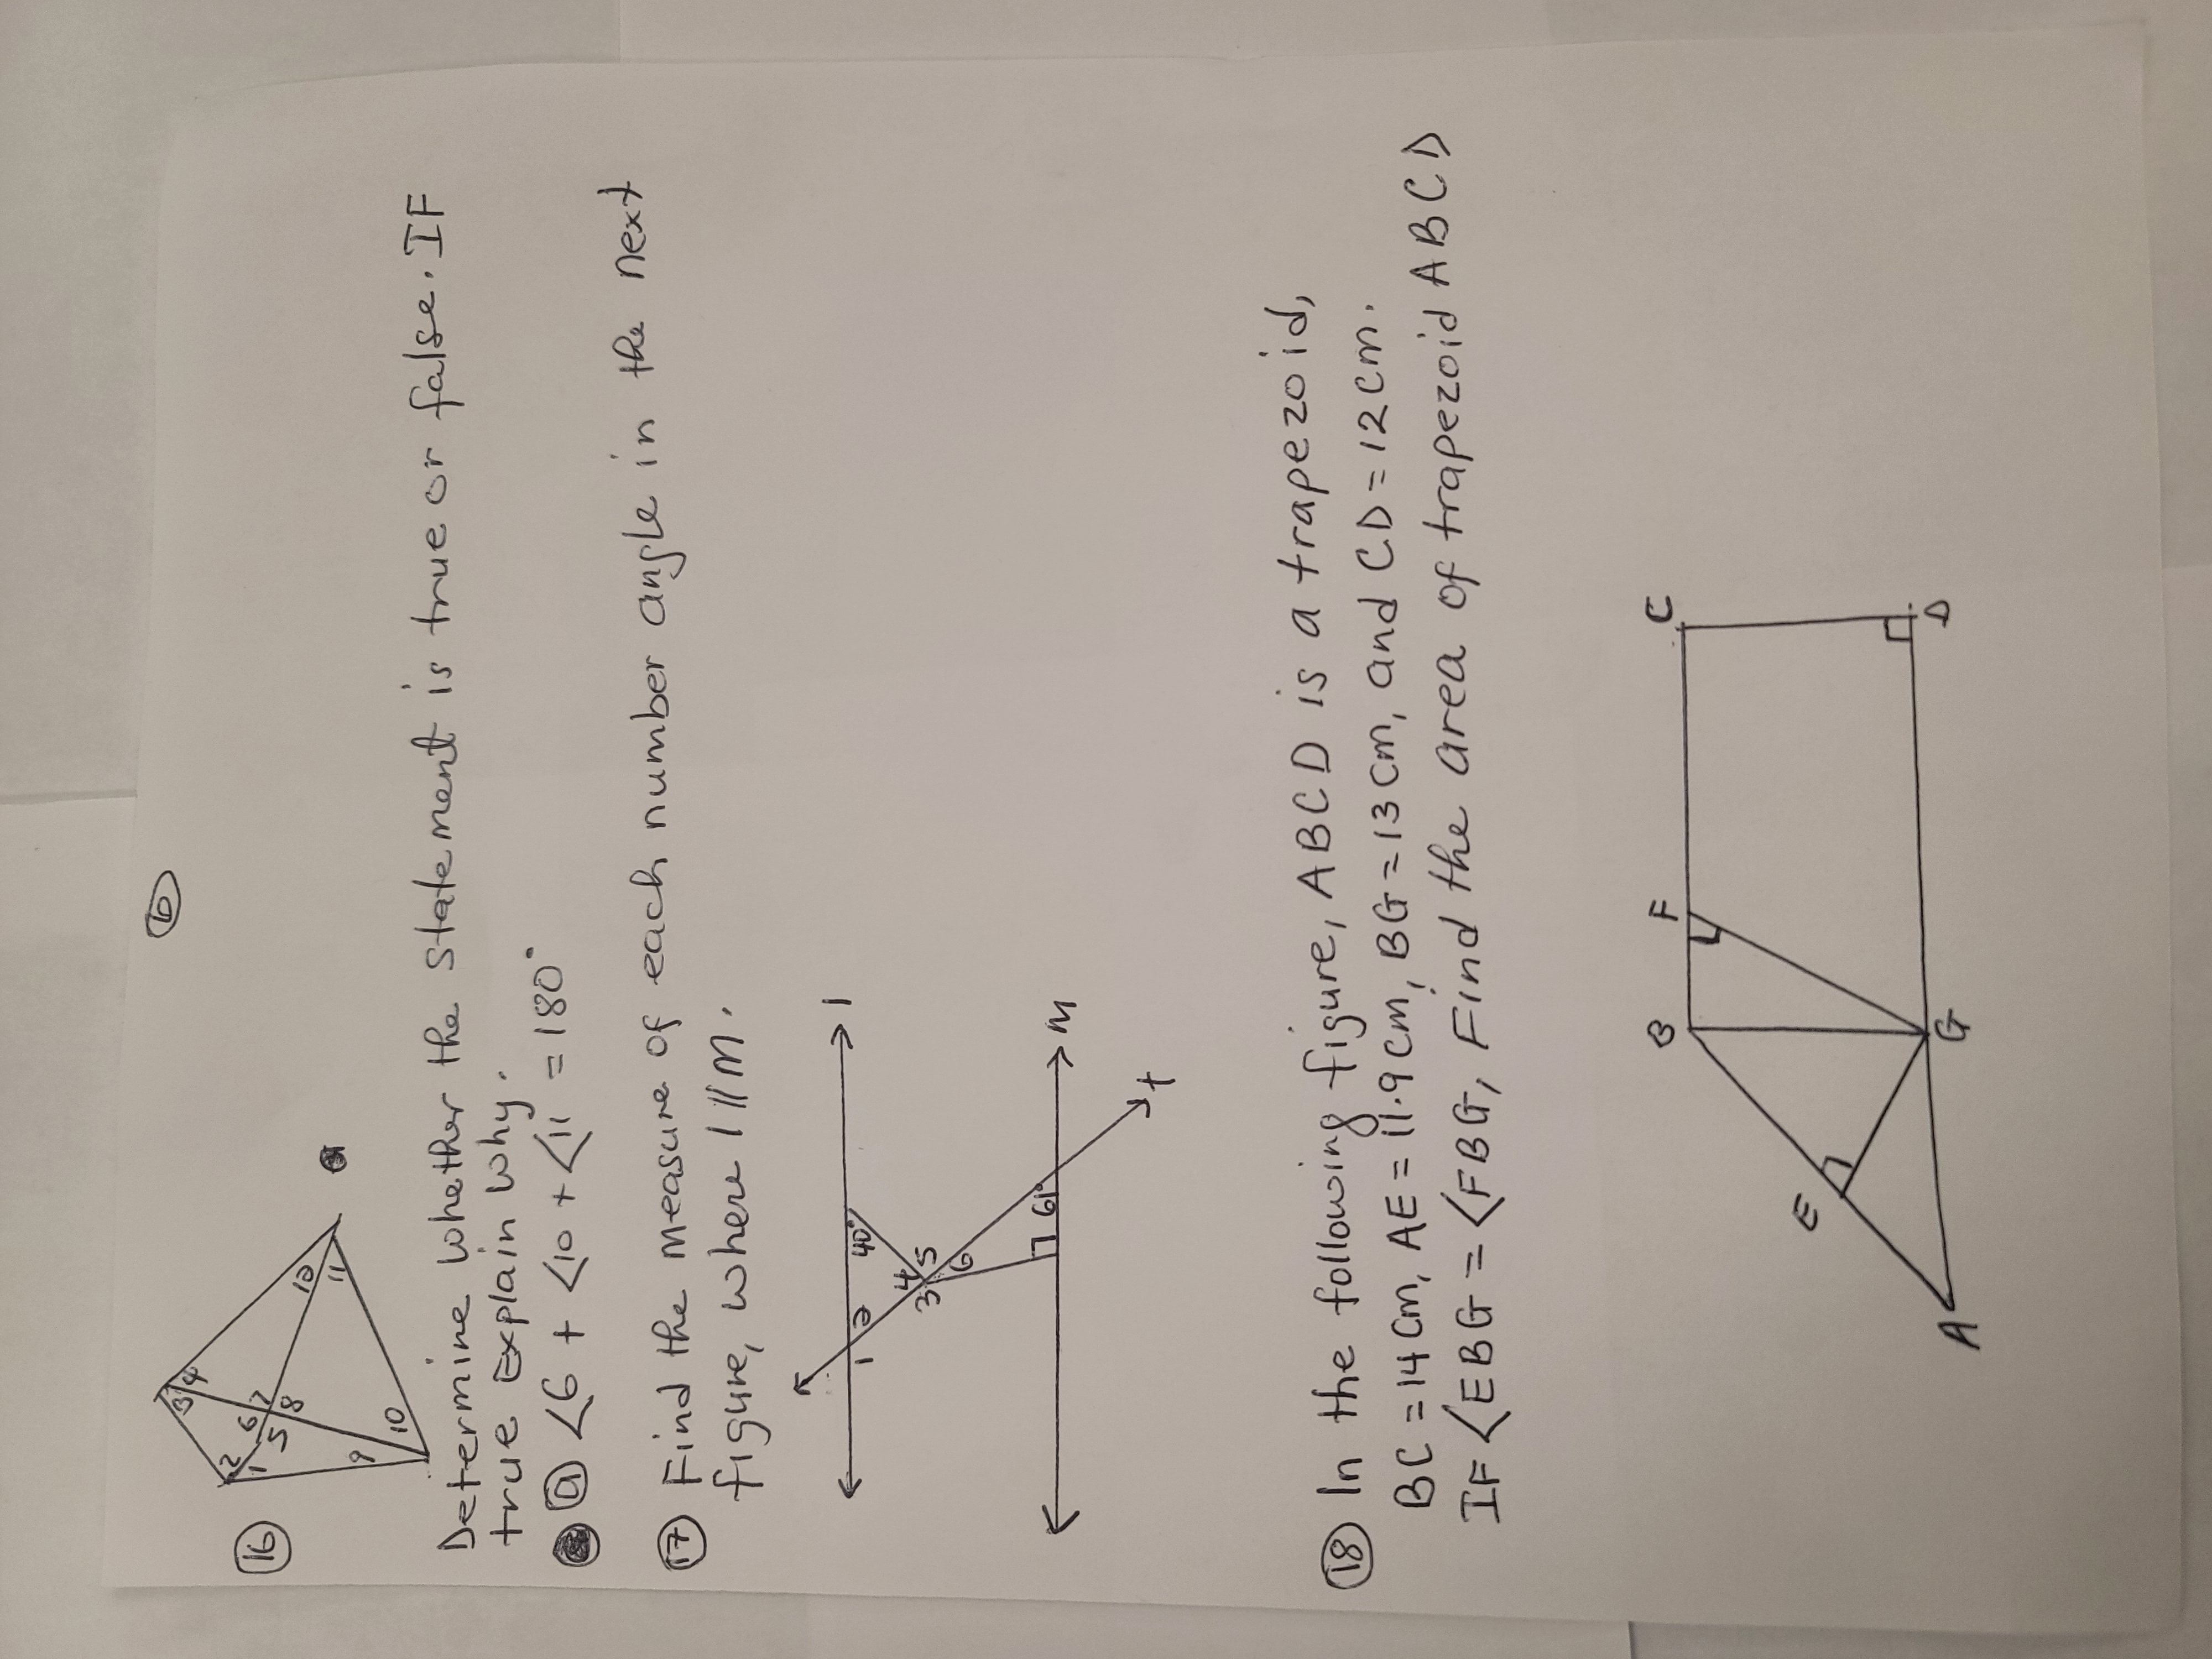 6
16
3 4
2 6 7 12
1 5 8 11
9 10
Determine whether the statement is true or false. IF
true Explain why.
a <6 + <10 + <11 = 180°
17 Find the measure of each number angle in the next
figure, where l || m.
l
1 2 40°
3 4 5
6 61°
m
t
18 In the following figure, ABCD is a trapezoid,
BC = 14 cm, AE = 11.9 cm, BG = 13 cm, and CD = 12 cm.
IF <EBG = <FBG, Find the area of trapezoid ABCD
B F C
E
A G D